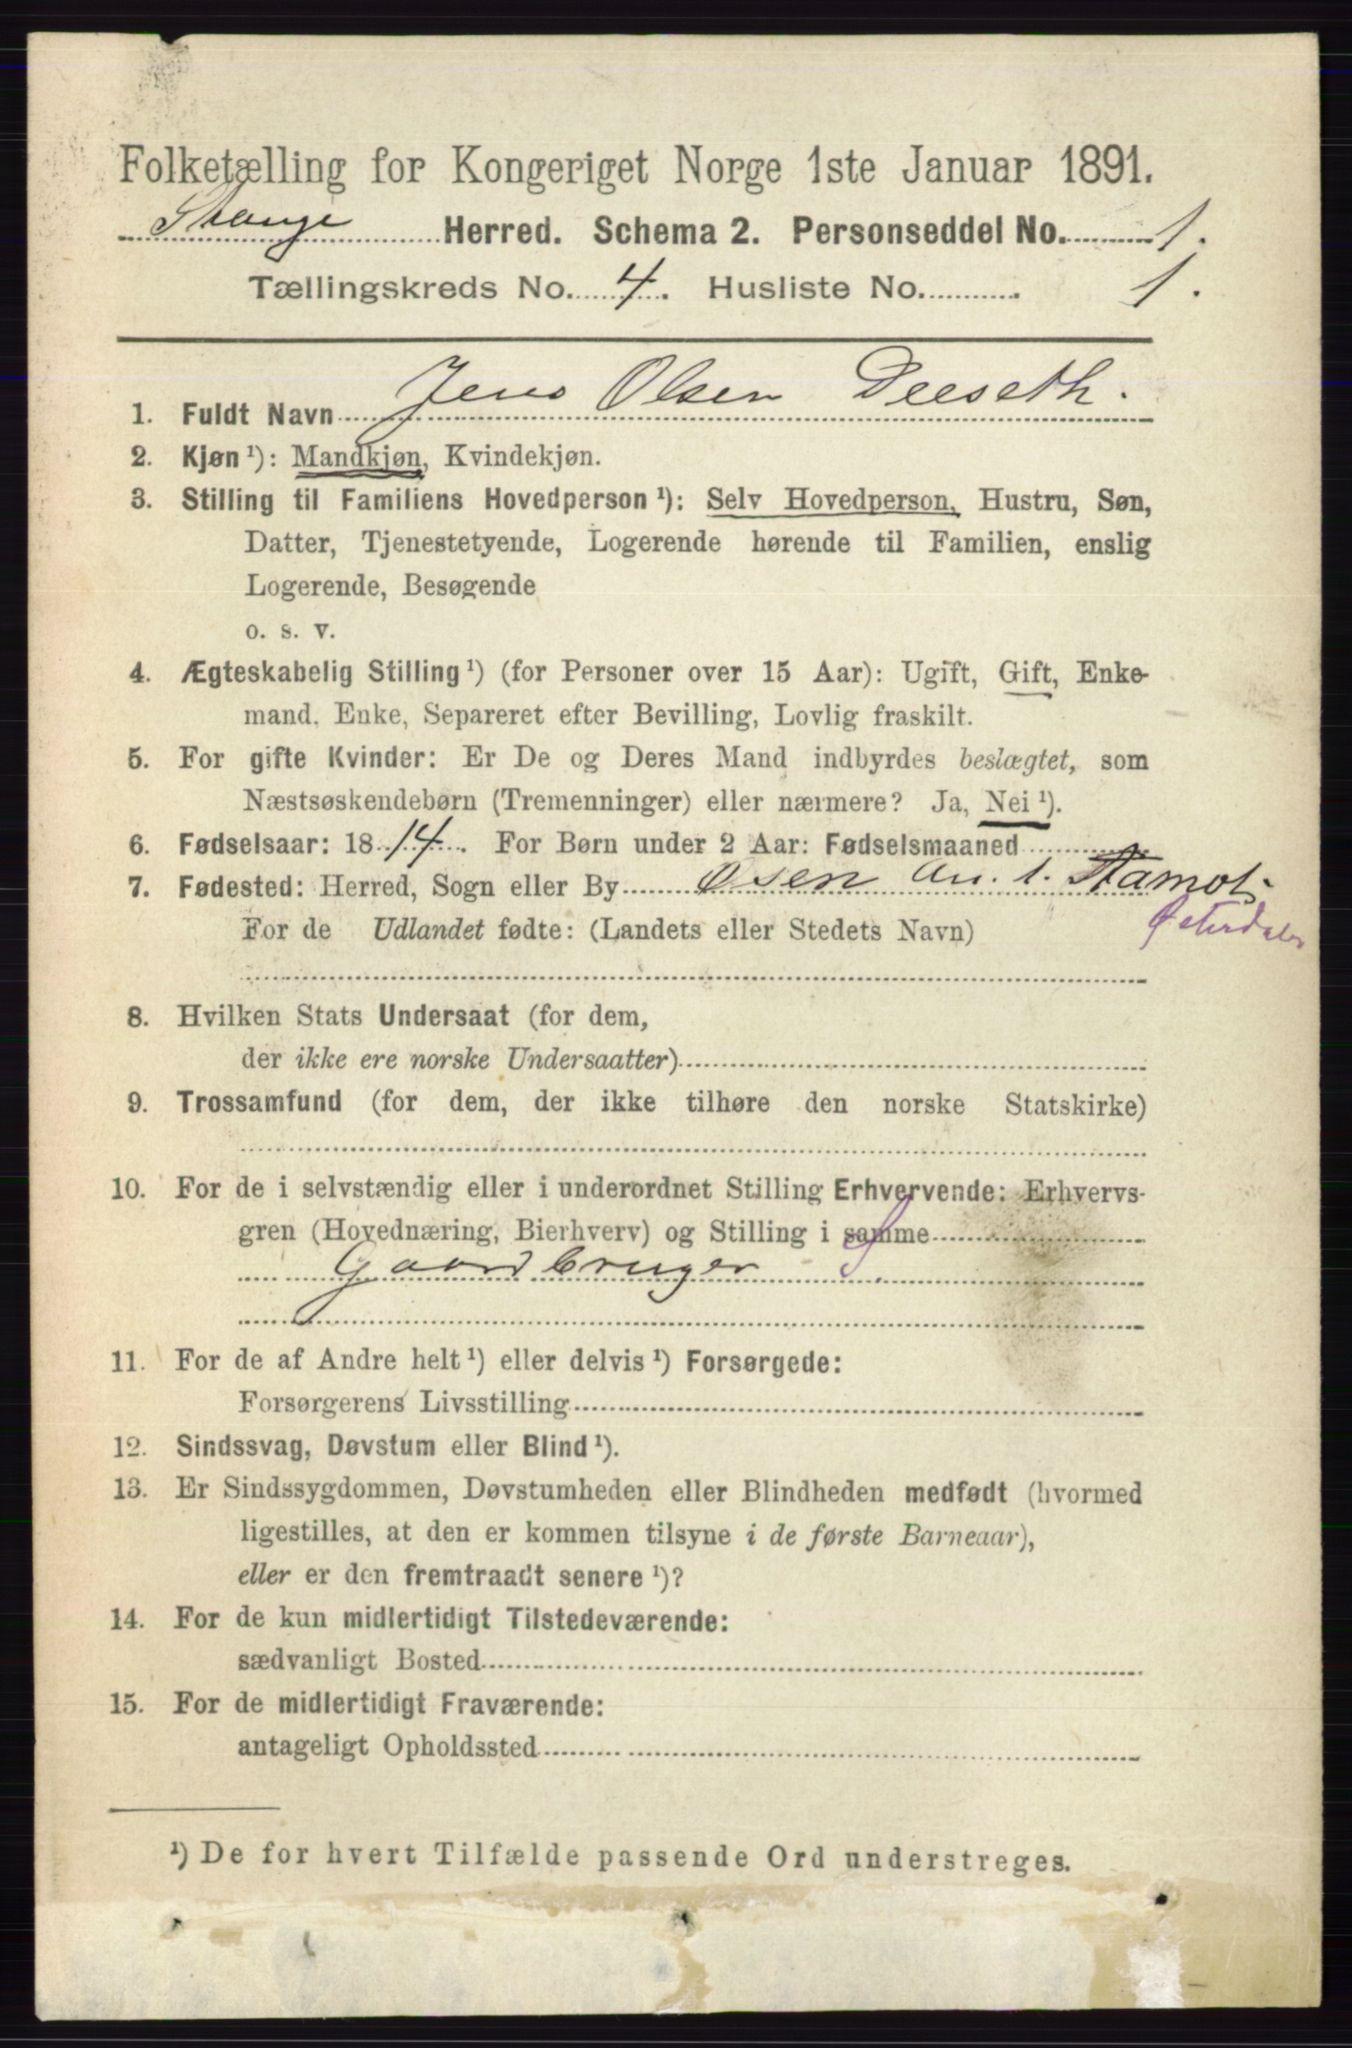 Folketælling for Kongeriget Norge 1ste Januar 1891.
Stange Herred. Schema 2. Personseddel No. 1.
Tællingskreds No. 4. Husliste No. 1.
1. Fuldt Navn Jens Olsen Deeseth.
2. Kjøn¹): Mandkjøn, Kvindekjøn.
3. Stilling til Familiens Hovedperson¹): Selv Hovedperson, Hustru, Søn,
Datter, Tjenestetyende, Logerende hørende til Familien, enslig
Logerende, Besøgende
o. s. v.
4. Ægteskabelig Stilling¹) (for Personer over 15 Aar): Ugift, Gift, Enke-
mand, Enke, Separeret efter Bevilling, Lovlig fraskilt.
5. For gifte Kvinder: Er De og Deres Mand indbyrdes beslægtet, som
Næstsøskendebørn (Tremenninger) eller nærmere? Ja, Nei¹).
6. Fødselsaar: 1814. For Børn under 2 Aar: Fødselsmaaned
7. Fødested: Herred, Sogn eller By Osen An.
For de Udlandet fødte: (Landets eller Stedets Navn) Østerdalen
8. Hvilken Stats Undersaat (for dem,
der ikke ere norske Undersaatter)
9. Trossamfund (for dem, der ikke tilhøre den norske Statskirke)
10. For de i selvstændig eller i underordnet Stilling Erhvervende: Erhvervs-
gren (Hovednæring, Bierhverv) og Stilling i samme
Gaardbruger S.
11. For de af Andre helt¹) eller delvis¹) Forsørgede:
Forsørgerens Livsstilling
12. Sindssvag, Døvstum eller Blind¹).
13. Er Sindssygdommen, Døvstumheden eller Blindheden medfødt (hvormed
ligestilles, at den er kommen tilsyne i de første Barneaar),
eller er den fremtraadt senere¹)?
14. For de kun midlertidigt Tilstedeværende:
sædvanligt Bosted
15. For de midlertidigt Fraværende:
antageligt Opholdssted
¹) De for hvert Tilfælde passende Ord understreges.